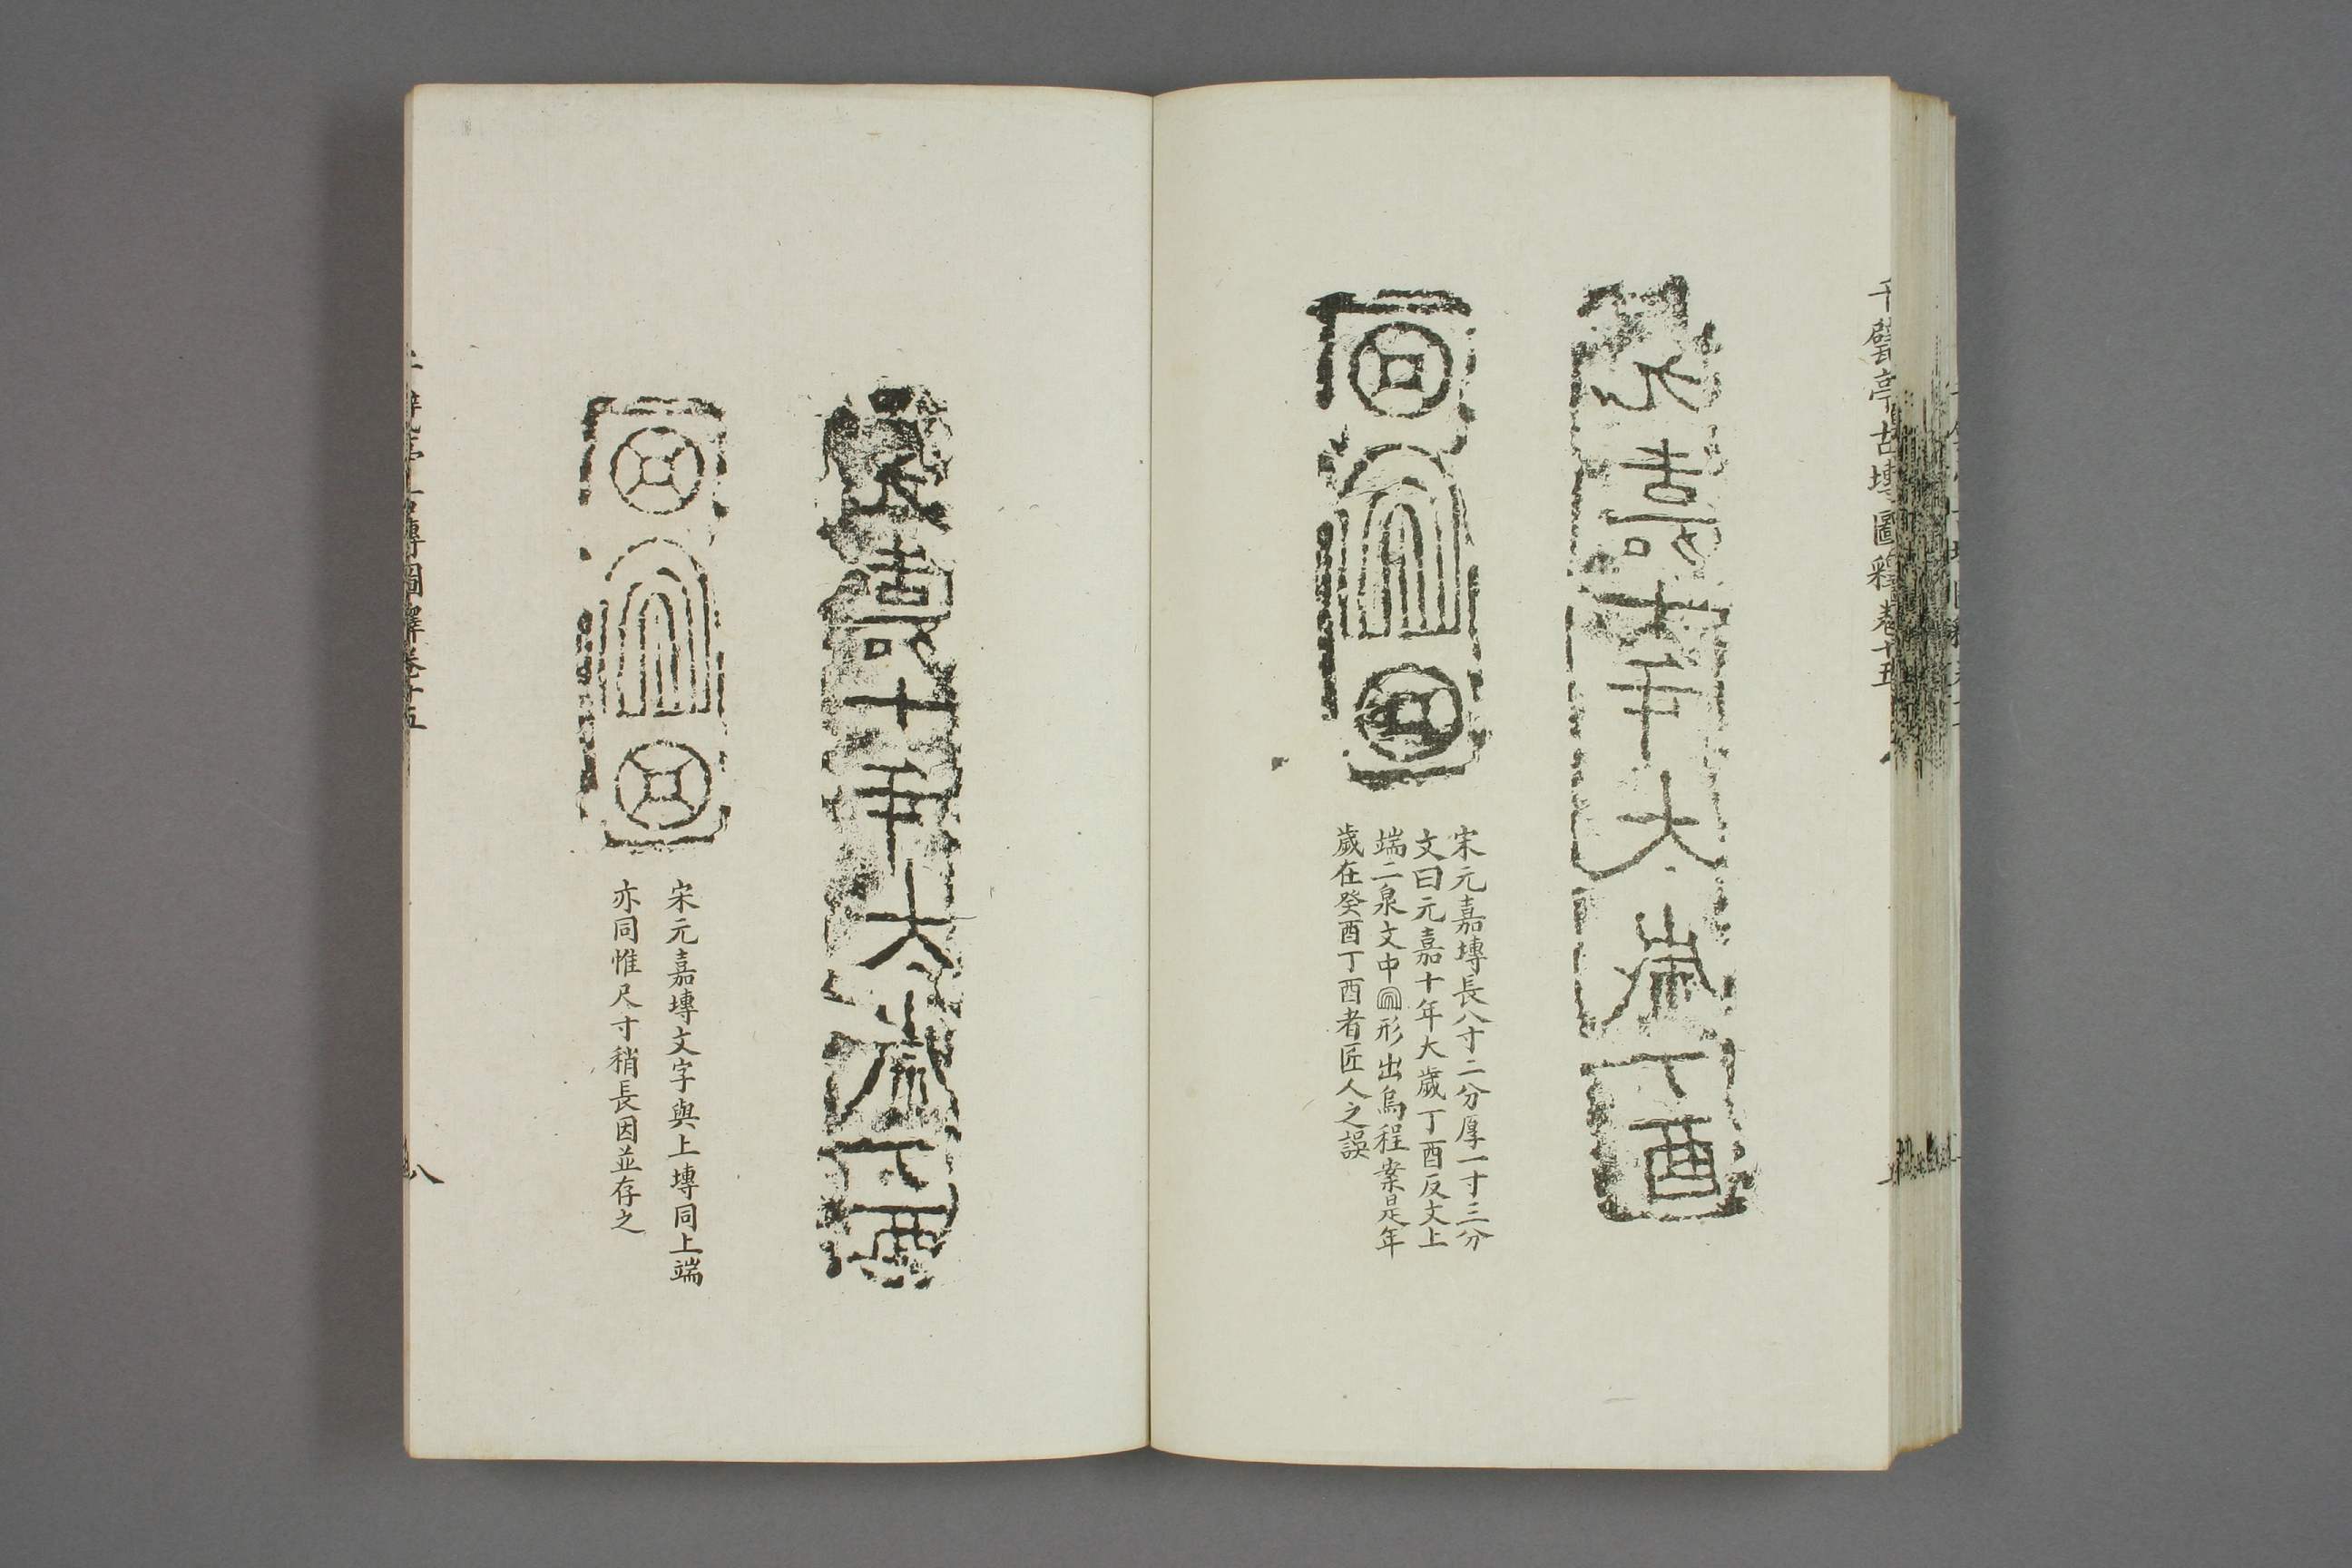 千甓亭古塼圖釋卷十五
嘉十年大歲丁酉
宋元嘉塼長八寸二分厚一寸三分
文曰元嘉十年大歲丁酉反文上
端二泉文中形出烏程案是年
歲在癸酉丁酉者匠人之誤
嘉十年大歲丁酉
宋元嘉塼文字與上塼同上端
亦同惟尺寸稍長因並存之
千甓亭古塼圖釋卷十五
八